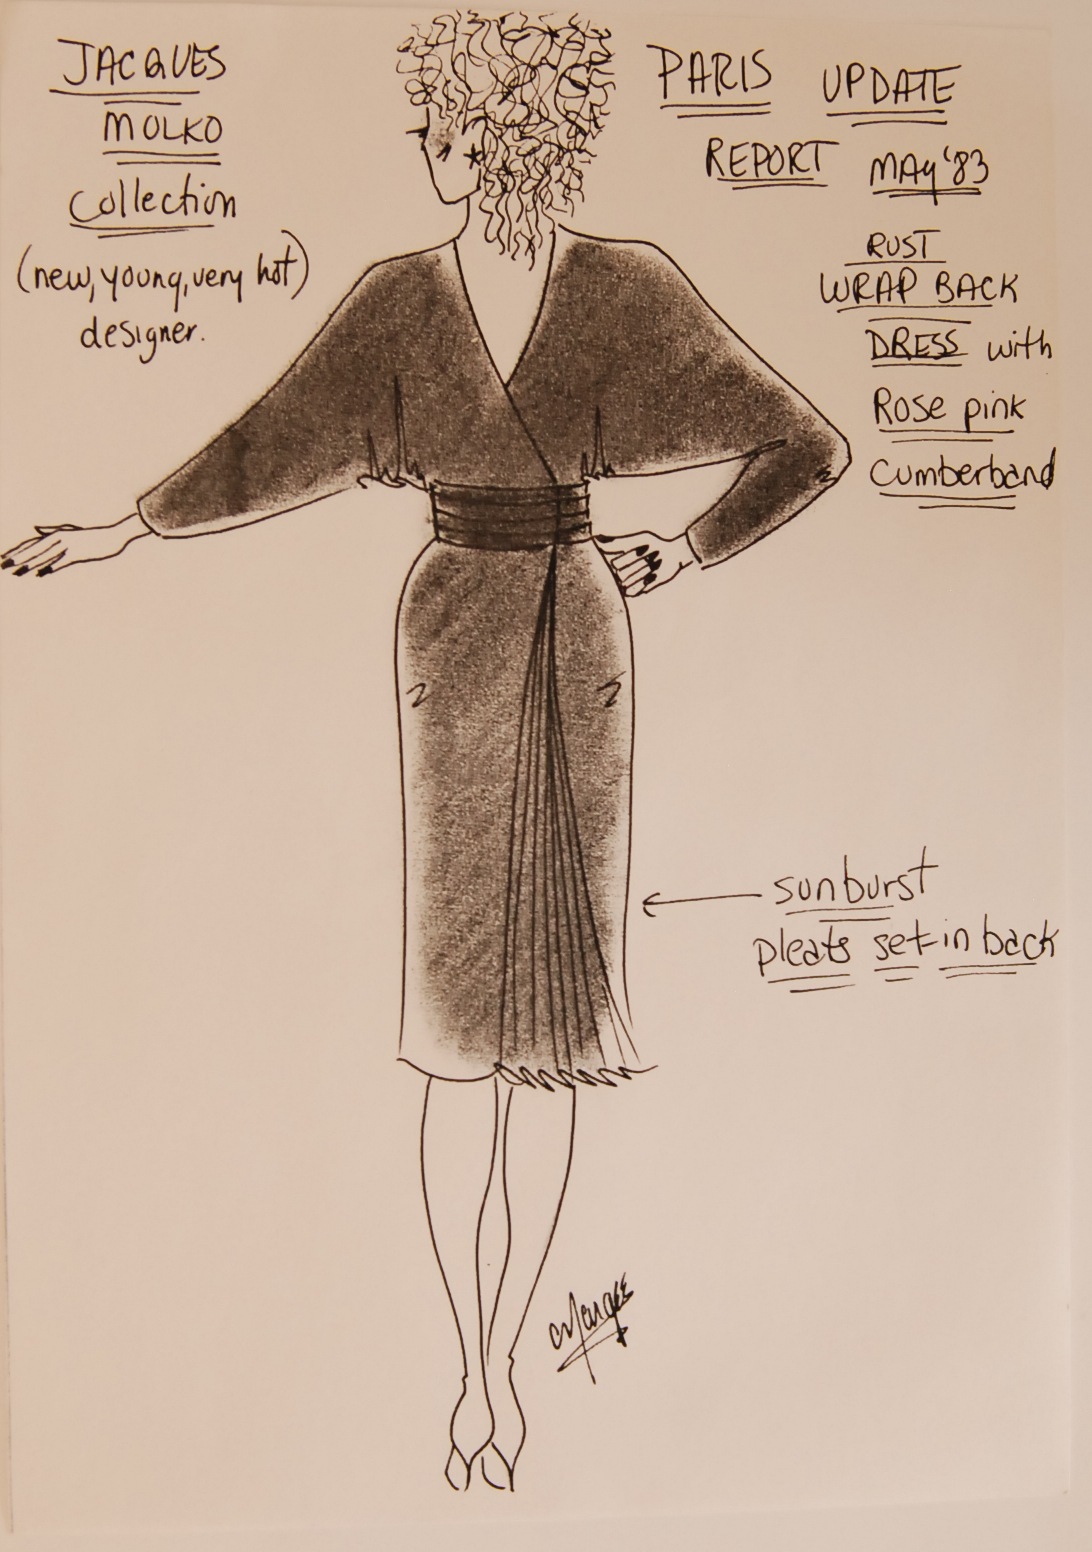 JACQUES
MOLKO
Collection
(new, young, very hot)
designer.
PARIS UPDATE
REPORT MAY '83
RUST
WRAP BACK
DRESS with
Rose pink
Cumberband
sunburst
pleats set-in back